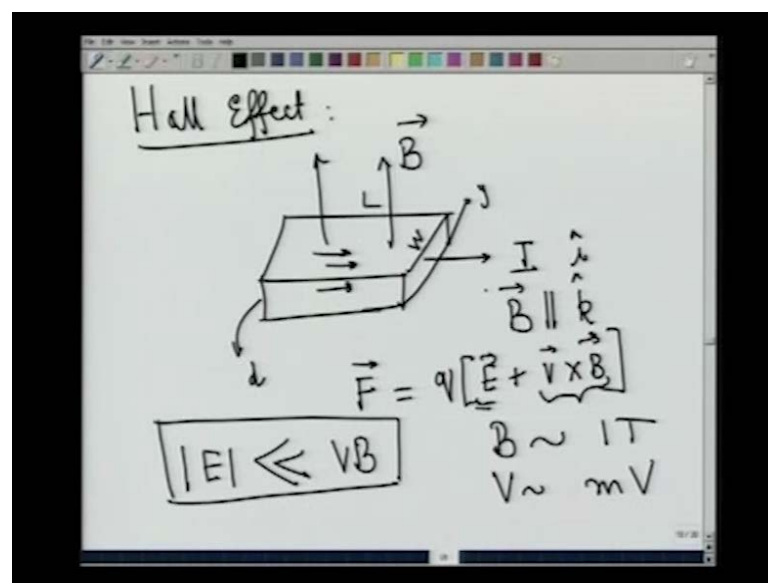 File Edit View Insert Actions Tools Help
Hall Effect :
B
L
y
W
I î
B || k̂
d
F = q[E + V × B]
|E| ≪ VB
B ~ 1T
V ~ mV